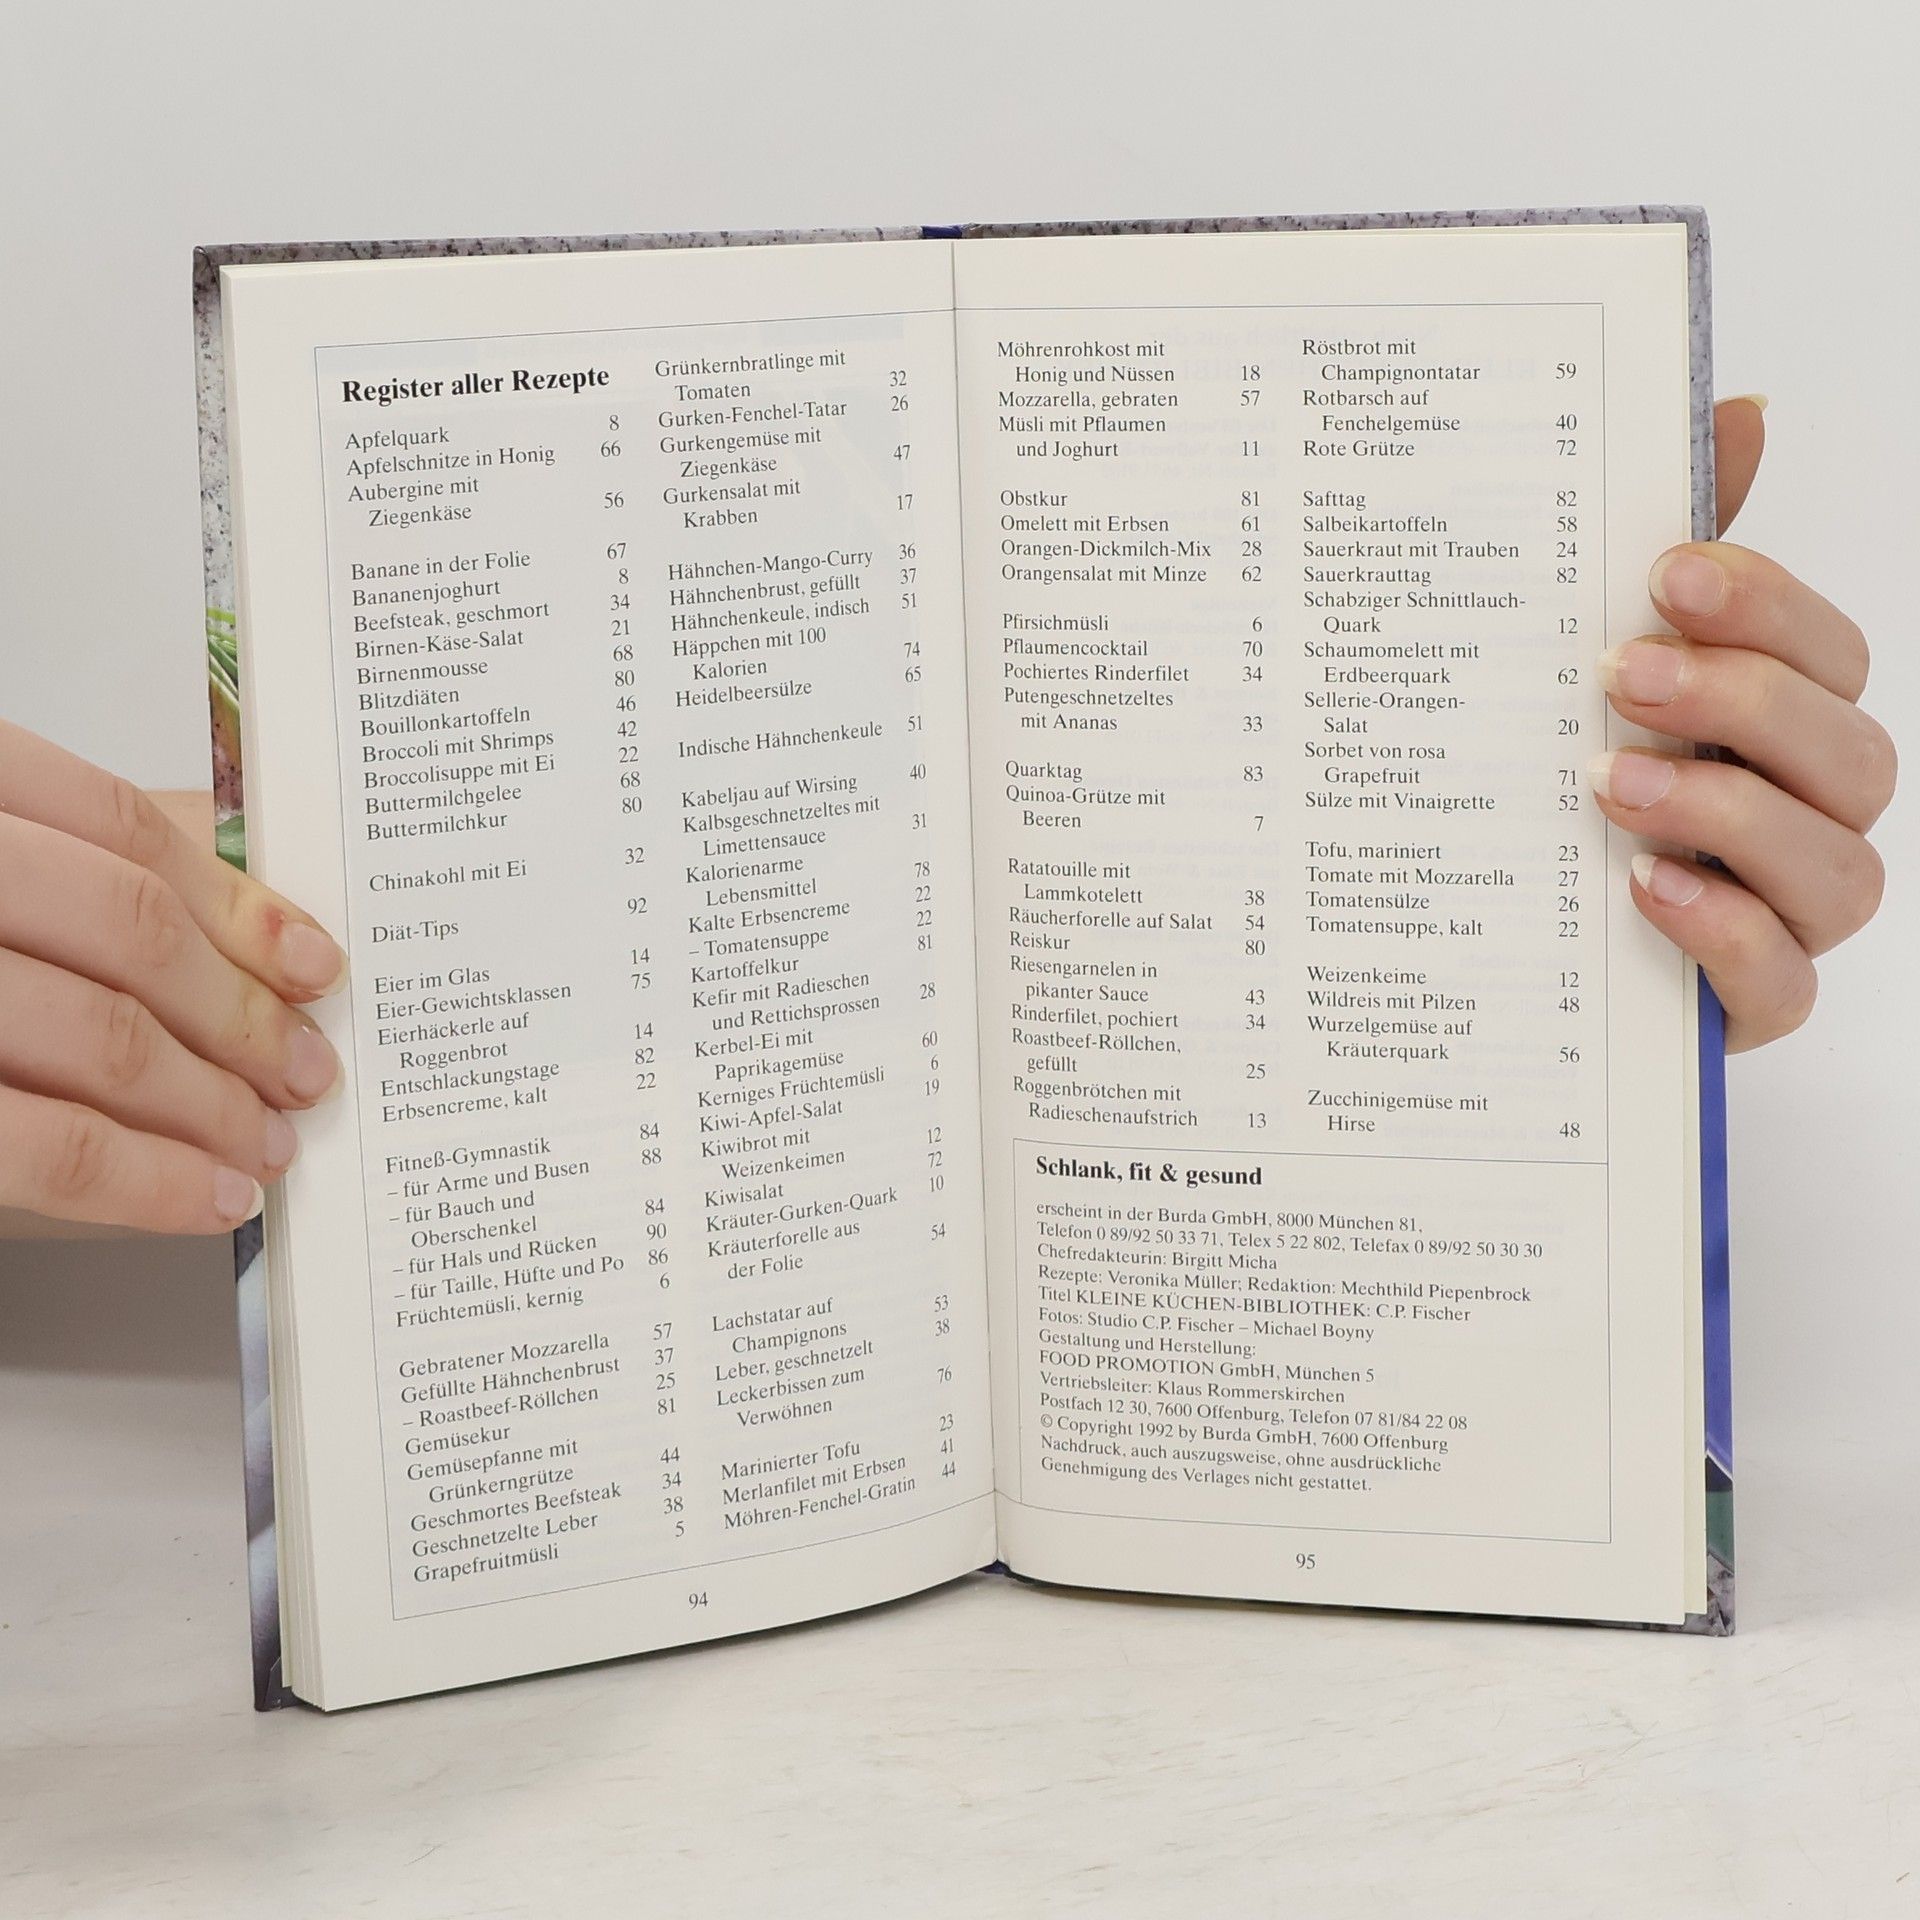 Register aller Rezepte
Apfelquark 8
Apfelschnitze in Honig 66
Aubergine mit
Ziegenkäse 56
Banane in der Folie 67
Bananenjoghurt 8
Beefsteak, geschmort 34
Birnen-Käse-Salat 21
Birnenmousse 68
Blitzdiäten 80
Bouillonkartoffeln 46
Broccoli mit Shrimps 42
Broccolisuppe mit Ei 22
Buttermilchgelee 68
Buttermilchkur 80
Chinakohl mit Ei 32
Diät-Tips 92
Eier im Glas 14
Eier-Gewichtsklassen 75
Eierhäckerle auf
Roggenbrot 14
Entschlackungstage 82
Erbsencreme, kalt 22
Fitneß-Gymnastik 84
– für Arme und Busen 88
– für Bauch und
Oberschenkel 84
– für Hals und Rücken 90
– für Taille, Hüfte und Po 86
Früchtemüsli, kernig 6
Gebratener Mozzarella 57
Gefüllte Hähnchenbrust 37
– Roastbeef-Röllchen 25
Gemüsekur 81
Gemüsepfanne mit
Grünkerngrütze 44
Geschmortes Beefsteak 34
Geschnetzelte Leber 38
Grapefruitmüsli 5
Grünkernbratlinge mit
Tomaten 32
Gurken-Fenchel-Tatar 26
Gurkengemüse mit
Ziegenkäse 47
Gurkensalat mit
Krabben 17
Hähnchen-Mango-Curry 36
Hähnchenbrust, gefüllt 37
Hähnchenkeule, indisch 51
Häppchen mit 100
Kalorien 74
Heidelbeersülze 65
Indische Hähnchenkeule 51
Kabeljau auf Wirsing 40
Kalbsgeschnetzeltes mit
Limettensauce 31
Kalorienarme
Lebensmittel 78
Kalte Erbsencreme 22
– Tomatensuppe 22
Kartoffelkur 81
Kefir mit Radieschen
und Rettichsprossen 28
Kerbel-Ei mit
Paprikagemüse 60
Kerniges Früchtemüsli 6
Kiwi-Apfel-Salat 19
Kiwibrot mit
Weizenkeimen 12
Kiwisalat 72
Kräuter-Gurken-Quark 10
Kräuterforelle aus
der Folie 54
Lachstatar auf
Champignons 53
Leber, geschnetzelt 38
Leckerbissen zum
Verwöhnen 76
Marinierter Tofu 23
Merlanfilet mit Erbsen 41
Möhren-Fenchel-Gratin 44
94
Möhrenrohkost mit
Honig und Nüssen 18
Mozzarella, gebraten 57
Müsli mit Pflaumen
und Joghurt 11
Obstkur 81
Omelett mit Erbsen 61
Orangen-Dickmilch-Mix 28
Orangensalat mit Minze 62
Pfirsichmüsli 6
Pflaumencocktail 70
Pochiertes Rinderfilet 34
Putengeschnetzeltes
mit Ananas 33
Quarktag 83
Quinoa-Grütze mit
Beeren 7
Ratatouille mit
Lammkotelett 38
Räucherforelle auf Salat 54
Reiskur 80
Riesengarnelen in
pikanter Sauce 43
Rinderfilet, pochiert 34
Roastbeef-Röllchen,
gefüllt 25
Roggenbrötchen mit
Radieschenaufstrich 13
Röstbrot mit
Champignontatar 59
Rotbarsch auf
Fenchelgemüse 40
Rote Grütze 72
Safttag 82
Salbeikartoffeln 58
Sauerkraut mit Trauben 24
Sauerkrauttag 82
Schabziger Schnittlauch-
Quark 12
Schaumomelett mit
Erdbeerquark 62
Sellerie-Orangen-
Salat 20
Sorbet von rosa
Grapefruit 71
Sülze mit Vinaigrette 52
Tofu, mariniert 23
Tomate mit Mozzarella 27
Tomatensülze 26
Tomatensuppe, kalt 22
Weizenkeime 12
Wildreis mit Pilzen 48
Wurzelgemüse auf
Kräuterquark 56
Zucchinigemüse mit
Hirse 48
Schlank, fit & gesund
erscheint in der Burda GmbH, 8000 München 81,
Telefon 0 89/92 50 33 71, Telex 5 22 802, Telefax 0 89/92 50 30 30
Chefredakteurin: Birgitt Micha
Rezepte: Veronika Müller; Redaktion: Mechthild Piepenbrock
Titel KLEINE KÜCHEN-BIBLIOTHEK: C.P. Fischer
Fotos: Studio C.P. Fischer – Michael Boyny
Gestaltung und Herstellung:
FOOD PROMOTION GmbH, München 5
Vertriebsleiter: Klaus Rommerskirchen
Postfach 12 30, 7600 Offenburg, Telefon 07 81/84 22 08
© Copyright 1992 by Burda GmbH, 7600 Offenburg
Nachdruck, auch auszugsweise, ohne ausdrückliche
Genehmigung des Verlages nicht gestattet.
95